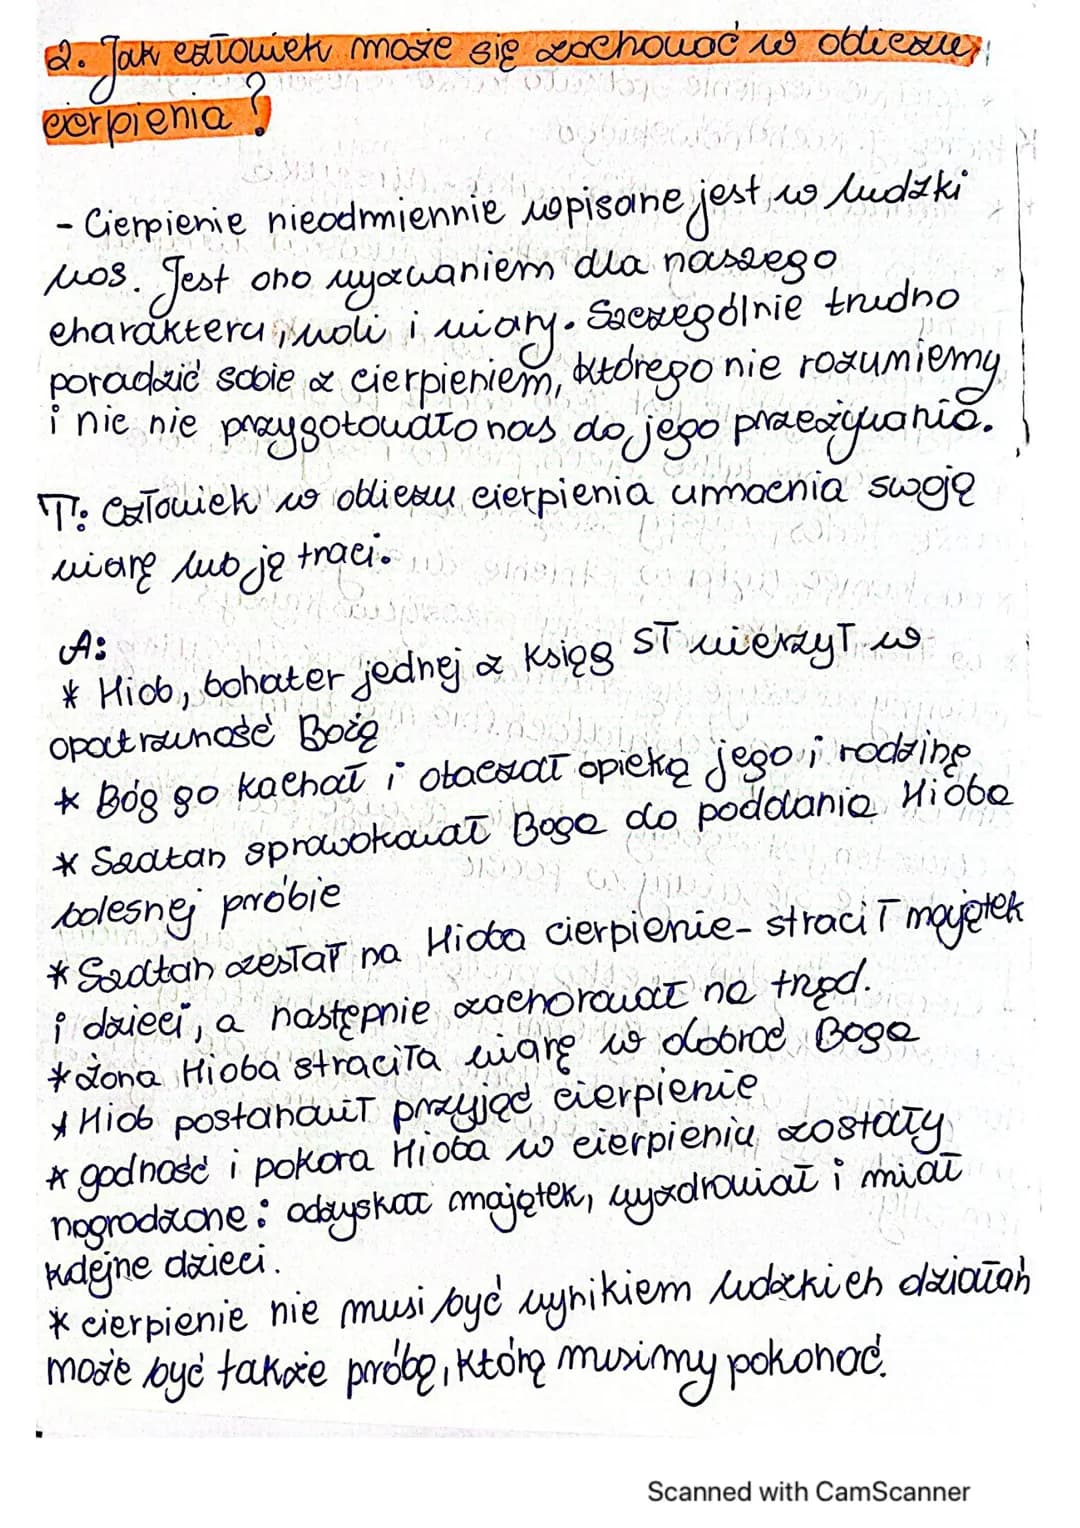 2. Jak człowiek może się zachować w obliczu
cierpienia?
- Cierpienie nieodmiennie wpisane jest w ludzki
los. Jest ono wyzwaniem dla naszego
charakteru, woli i wiary. Szczególnie trudno
poradzić sobie z cierpieniem, którego nie rozumiemy
i nic nie przygotowało nas do jego przeżywania.
T: Człowiek w obliczu cierpienia umacnia swoją
wiarę lub ją traci.
A:
* Hiob, bohater jednej z Ksiąg ST wierzył w
opatrzność Bożą
* Bóg go kochał i otaczał opieką jego i rodzinę
* Szatan sprowokował Boga do poddania Hioba
bolesnej próbie
* Szatan zesłał na Hioba cierpienie - stracił majątek
i dzieci, a następnie zachorował na trąd.
* żona Hioba straciła wiarę w dobroć Boga
* Hiob postanowił przyjąć cierpienie
* godność i pokora Hioba w cierpieniu zostały
nagrodzone: odzyskał majątek, wyzdrowiał i miał
kolejne dzieci.
* cierpienie nie musi być wynikiem ludzkich działań
może być także próbą, którą musimy pokonać.
Scanned with CamScanner